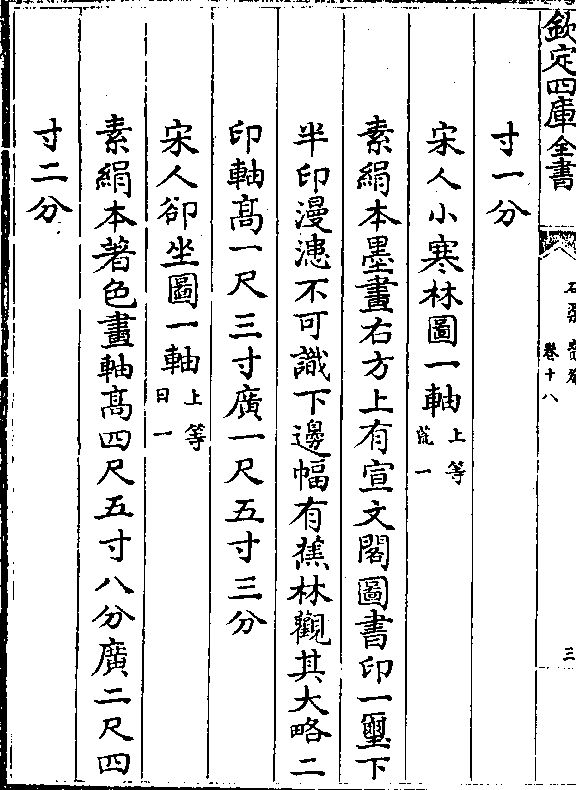 欽定四庫全書
卷十八
三
寸一分
宋人小寒林圖一軸 上等 荒一
素絹本墨畫右方上有宣文閣圖書印一璽下
半印漫漶不可識下邊幅有蕉林觀其大略二
印軸髙一尺三寸廣一尺五寸三分
宋人卻坐圖一軸 上等 日一
素絹本著色畫軸髙四尺五寸八分廣二尺四
寸二分